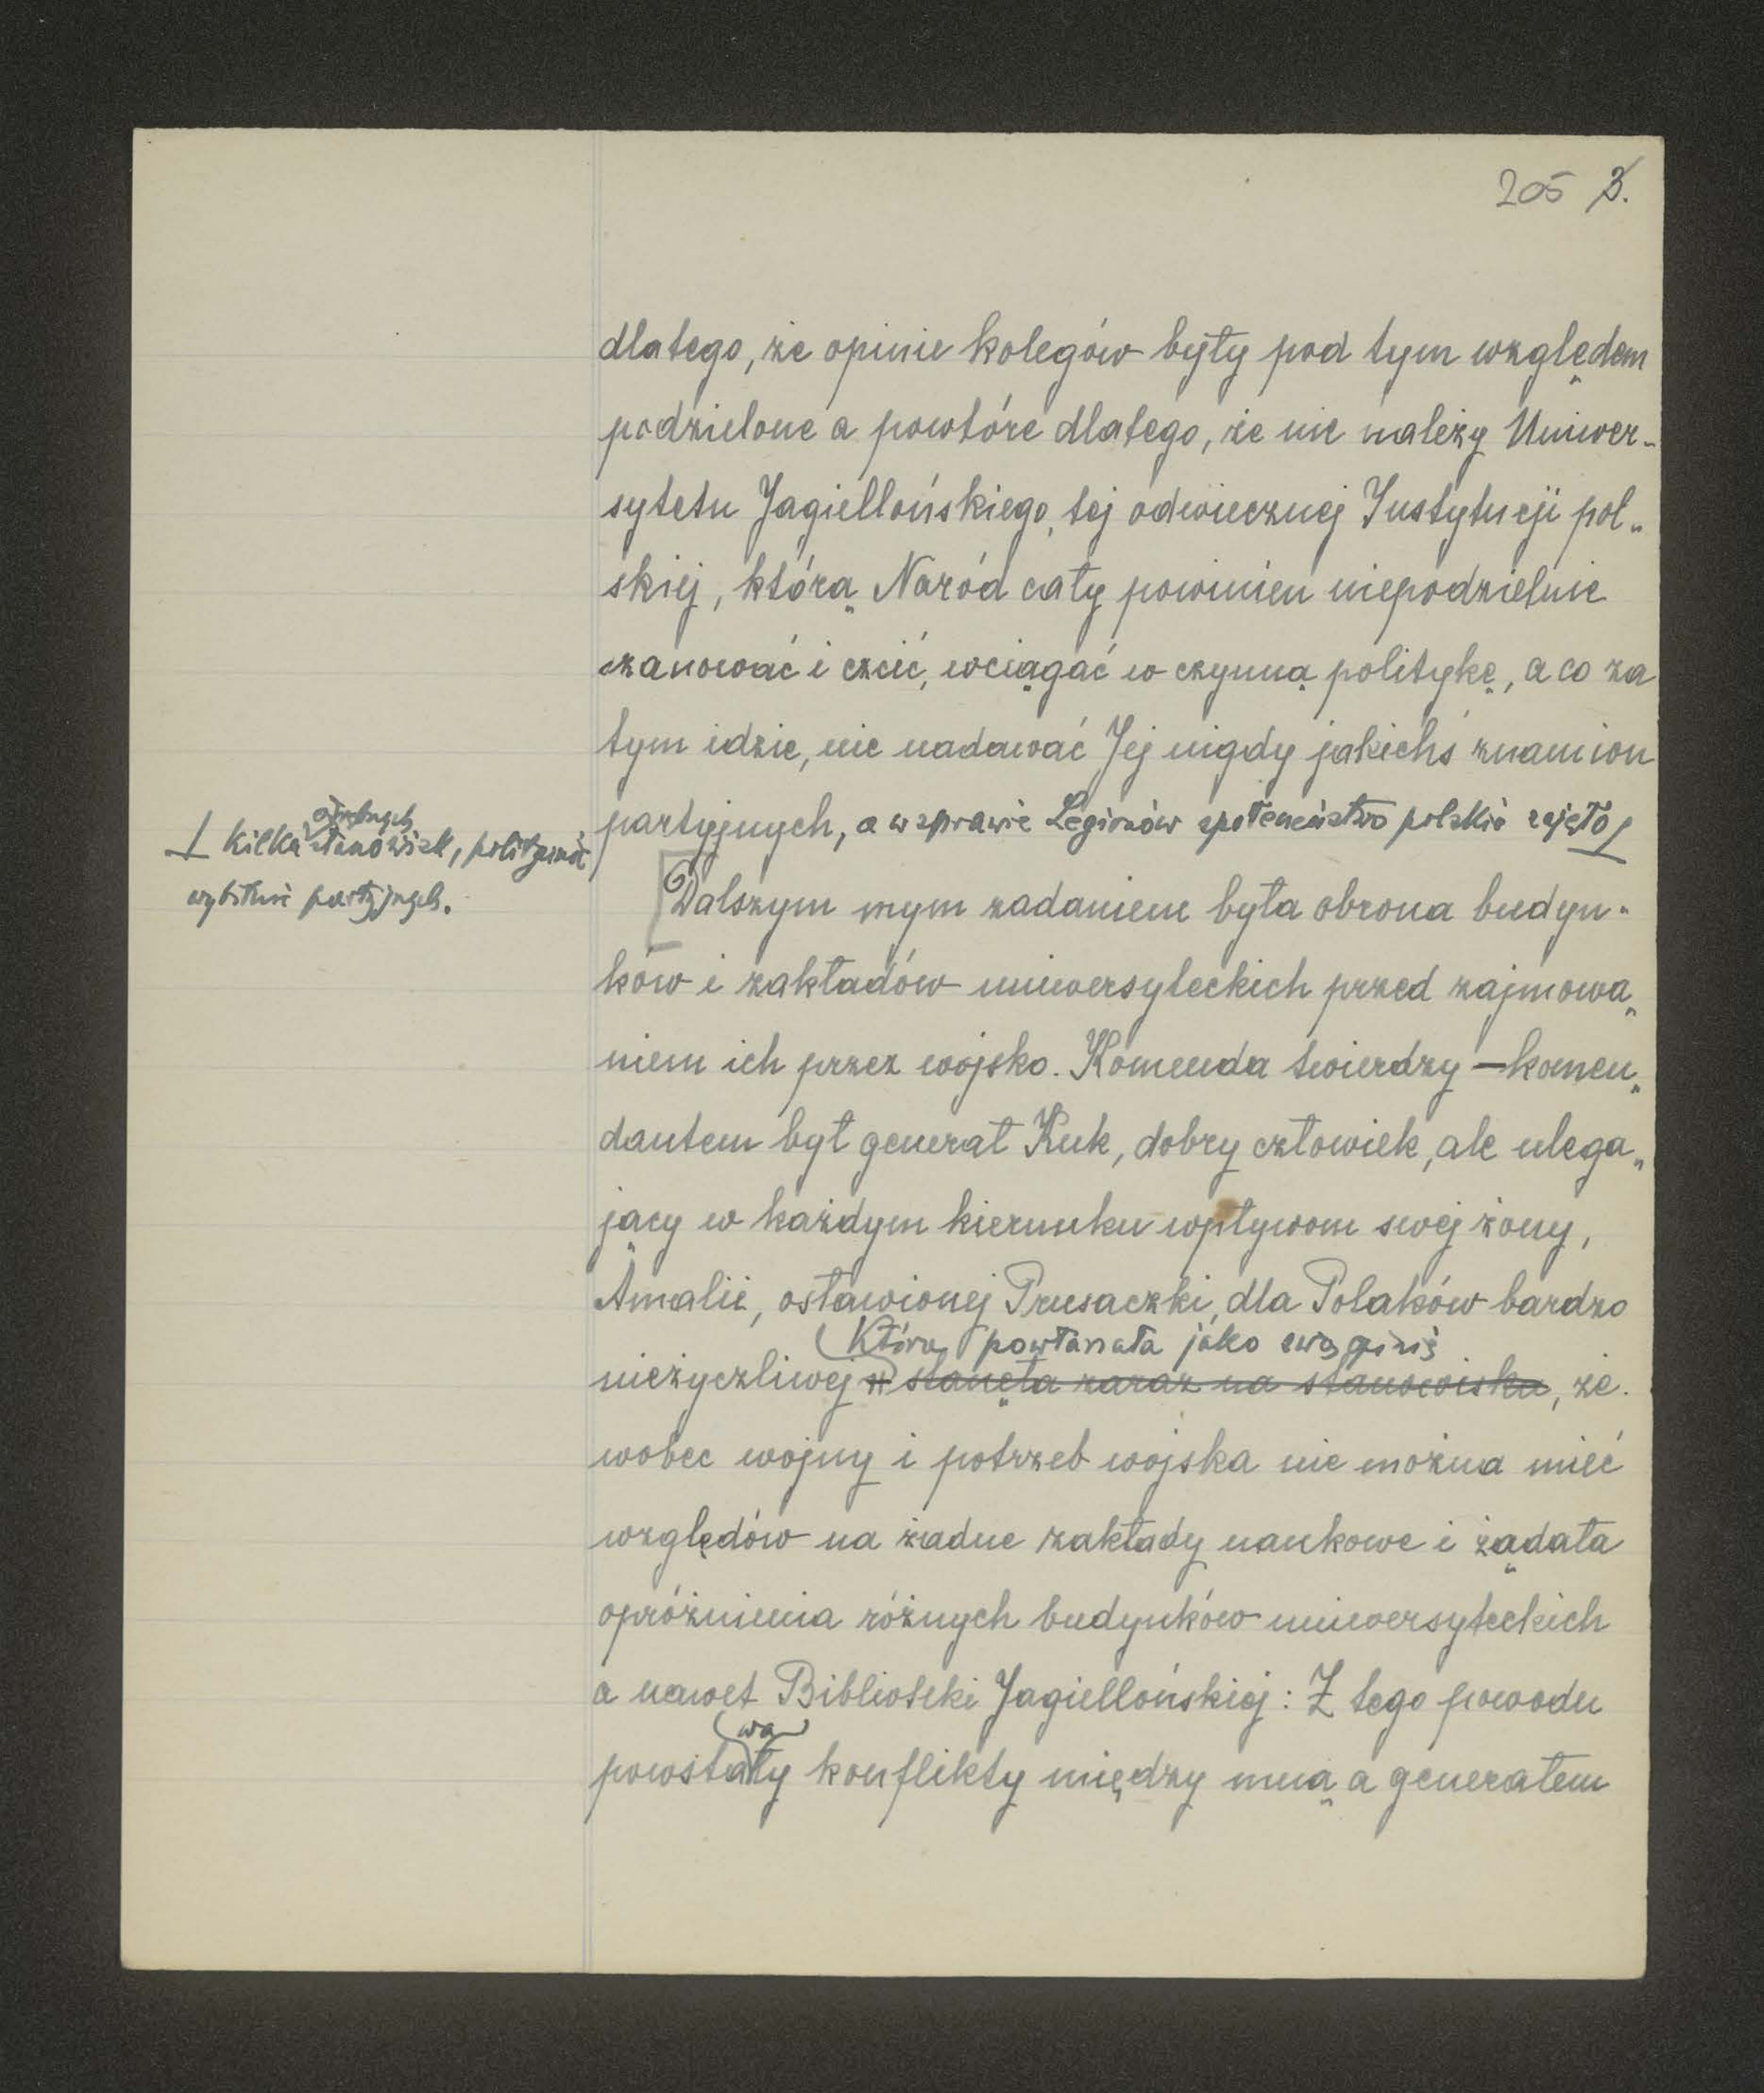 205 3.
dlatego, że opinie kolegów były pod tym względem
podzielone a powtóre dlatego, że nie należy Uniwer-
sytetu Jagiellońskiego, tej odwiecznej Instytucji pol-
skiej, którą Naród cały powinien niepodzielnie
szanować i czcić, wciągać w czynną politykę, a co za
tym idzie, nie nadawać Jej nigdy jakichś znamion
partyjnych, a w sprawie Legionów społeczeństwo polskie zajęło
odrębnych
kilka stanowisk, politycznie
wybitnie partyjnych.
Dalszym mym zadaniem była obrona budyn-
ków i zakładów uniwersyteckich przed zajmowa-
niem ich przez wojsko. Komenda twierdzy – komen-
dantem był generał Kuk, dobry człowiek, ale ulega-
jący w każdym kierunku wpływom swej żony,
Amalii, osławionej Prusaczki, dla Polaków bardzo
która powtarzała jako swą opinię
nieżyczliwej stanęła zaraz na stanowisku, że
wobec wojny i potrzeb wojska nie można mieć
względów na żadne zakłady naukowe i żądała
opróżnienia różnych budynków uniwersyteckich
a nawet Biblioteki Jagiellońskiej: Z tego powodu
wa
powstały konflikty między mną a generałem